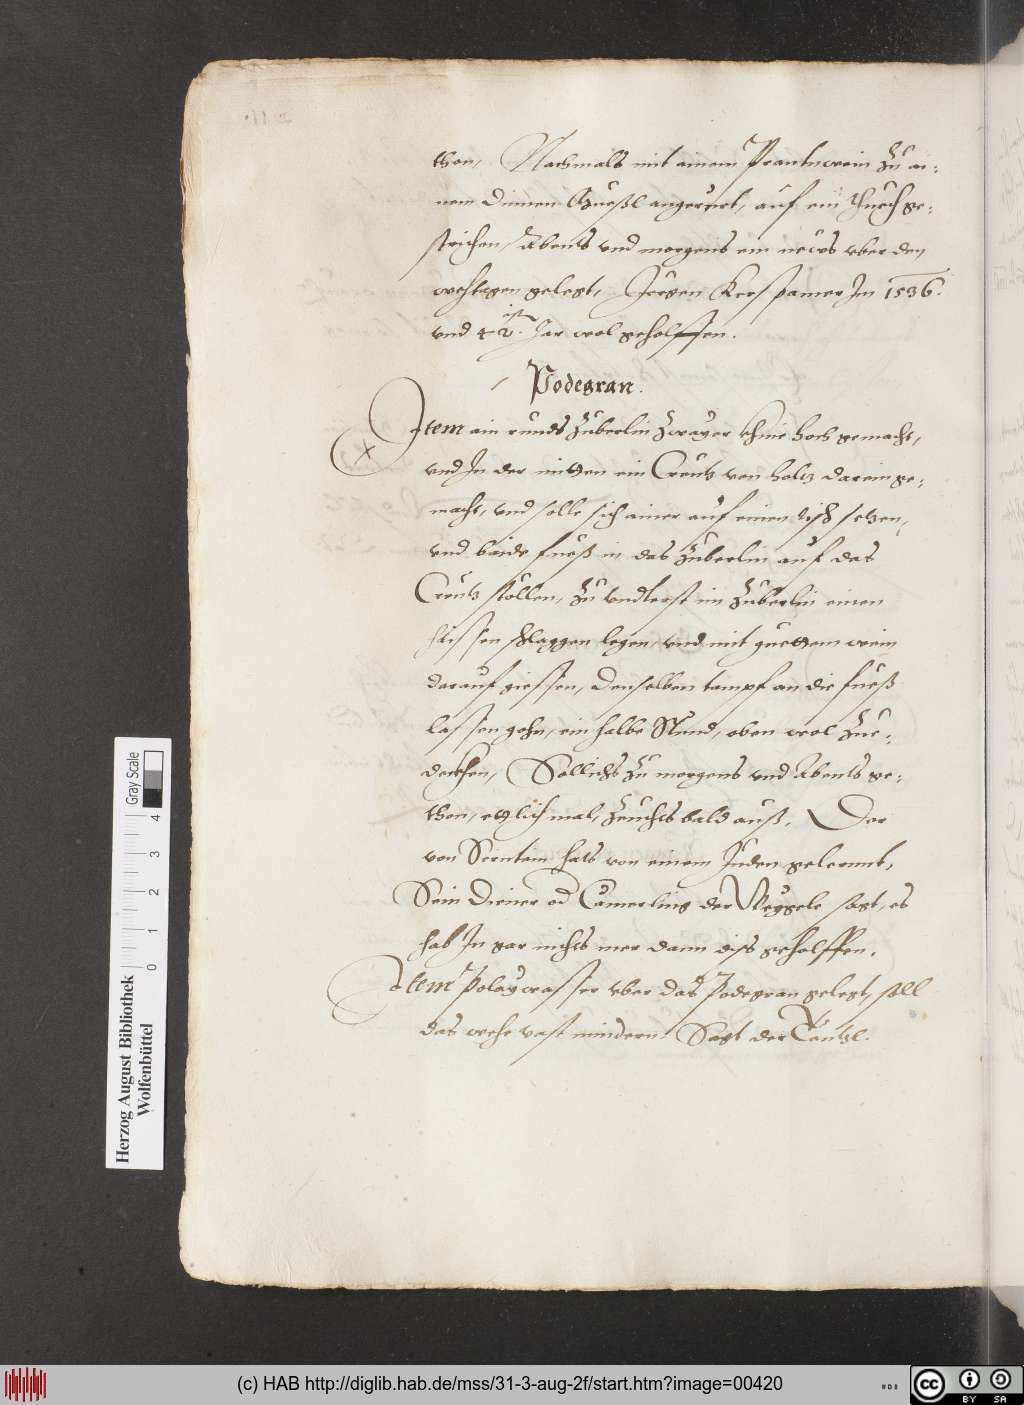 thon, Nachmals mit ainem Prantwein zu ai:
nem dinnen Muesßl angerurt, auf ein thuech ge:
strichen, Abents vnd morgens ein newes vber den
wehtagen gelegt, Jörgen Kerspamer Jm 1536.
vnd 42. ist Jar wol geholffen.
Podegran.
Item ain runds Zuberlin Zwayer khnie hoch gemacht,
vnd In der mitten ein Creutz von holtz darein ge:
macht, vnd solle sich ainer auf einen tisch setzen,
vnd baide fueß in das Zuberlin auf das
Creutz stollen, Zu vndterst im Zuberlin einen
haissen schlaggen legen, vnd mit guettem wein
darauf giessen, denselben tampf an die fueß
lassen gehn, ein halbe Stund, oben wol Zue:
deckhen, Sollichs Zu morgens vnd Abents ge:
thon, ettlich mal, Zeuchts bald auß. Der
von Serntein hats von einem Juden gelernnt,
Sein diener od Camerling der sagt, es
hab Jn gar nichts mer dann diss geholffen.
Item Polaywasser vber das Podegran gelegt, soll
das wehe vast mindern. Sagt der Täntzl.
Herzog August Bibliothek
Wolfenbüttel
0 1 2 3 4
Gray Scale
(c) HAB http://diglib.hab.de/mss/31-3-aug-2f/start.htm?image=00420
cc BY SA